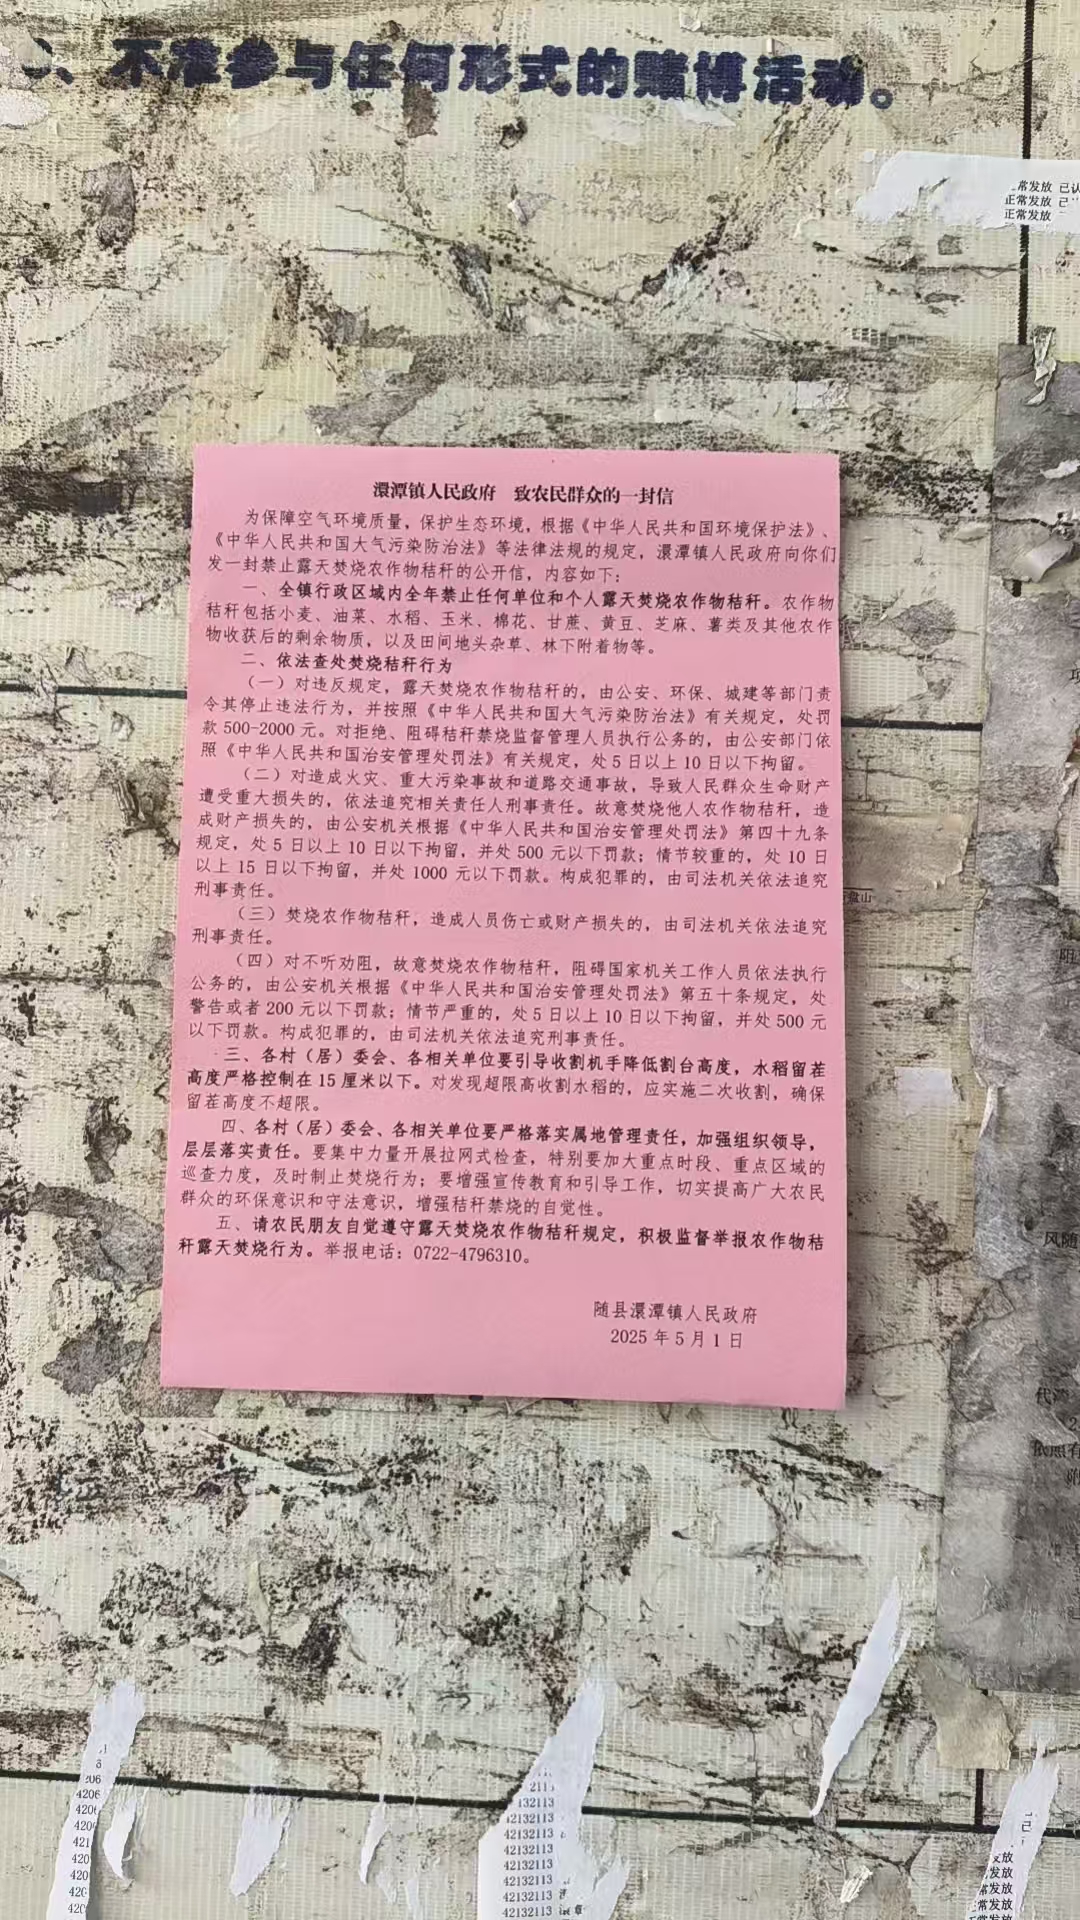 、不准参与任何形式的赌博活动。
正常发放 已
正常发放
澴潭镇人民政府 致农民群众的一封信
为保障空气环境质量，保护生态环境，根据《中华人民共和国环境保护法》、
《中华人民共和国大气污染防治法》等法律法规的规定，澴潭镇人民政府向你们
发一封禁止露天焚烧农作物秸秆的公开信，内容如下：
一、全镇行政区域内全年禁止任何单位和个人露天焚烧农作物秸秆。农作物
秸秆包括小麦、油菜、水稻、玉米、棉花、甘蔗、黄豆、芝麻、薯类及其他农作
物收获后的剩余物质，以及田间地头杂草、林下附着物等。
二、依法查处焚烧秸秆行为
（一）对违反规定，露天焚烧农作物秸秆的，由公安、环保、城建等部门责
令其停止违法行为，并按照《中华人民共和国大气污染防治法》有关规定，处罚
款500-2000元。对拒绝、阻碍秸秆禁烧监督管理人员执行公务的，由公安部门依
照《中华人民共和国治安管理处罚法》有关规定，处5日以上10日以下拘留。
（二）对造成火灾、重大污染事故和道路交通事故，导致人民群众生命财产
遭受重大损失的，依法追究相关责任人刑事责任。故意焚烧他人农作物秸秆，造
成财产损失的，由公安机关根据《中华人民共和国治安管理处罚法》第四十九条
规定，处5日以上10日以下拘留，并处500元以下罚款；情节较重的，处10日
以上15日以下拘留，并处1000元以下罚款。构成犯罪的，由司法机关依法追究
刑事责任。
（三）焚烧农作物秸秆，造成人员伤亡或财产损失的，由司法机关依法追究
刑事责任。
（四）对不听劝阻，故意焚烧农作物秸秆，阻碍国家机关工作人员依法执行
公务的，由公安机关根据《中华人民共和国治安管理处罚法》第五十条规定，处
警告或者200元以下罚款；情节严重的，处5日以上10日以下拘留，并处500元
以下罚款。构成犯罪的，由司法机关依法追究刑事责任。
三、各村（居）委会、各相关单位要引导收割机手降低割台高度，水稻留茬
高度严格控制在15厘米以下。对发现超限高收割水稻的，应实施二次收割，确保
留茬高度不超限。
四、各村（居）委会、各相关单位要严格落实属地管理责任，加强组织领导，
层层落实责任。要集中力量开展拉网式检查，特别要加大重点时段、重点区域的
巡查力度，及时制止焚烧行为；要增强宣传教育和引导工作，切实提高广大农民
群众的环保意识和守法意识，增强秸秆禁烧的自觉性。
五、请农民朋友自觉遵守露天焚烧农作物秸秆规定，积极监督举报农作物秸
秆露天焚烧行为。举报电话：0722-4796310。
随县澴潭镇人民政府
2025年5月1日
42132113
42132113
42132113
42132113
42132113
42132113